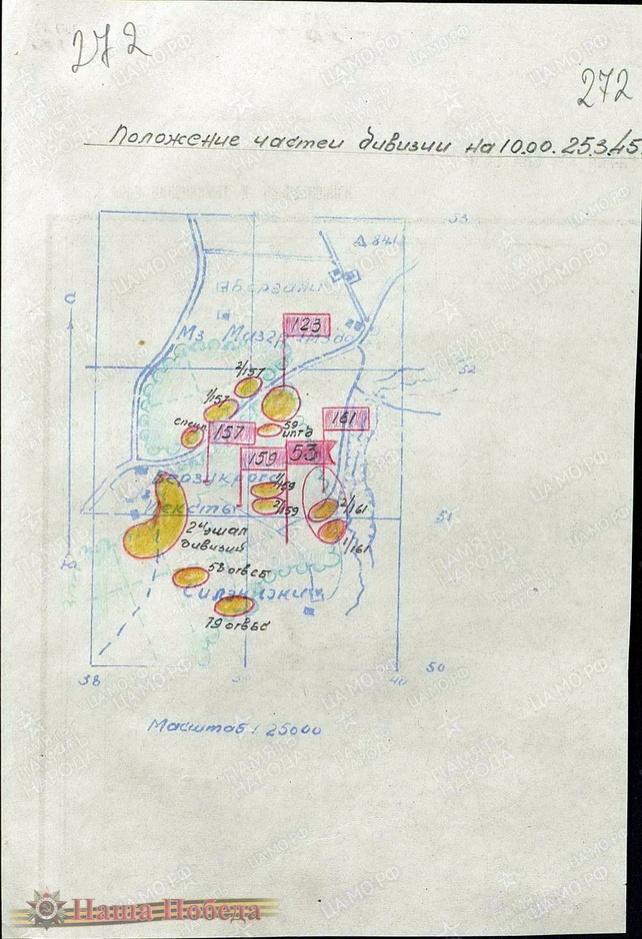 272
272
Положение частей дивизии на 10.00. 25.3.45.
53
84.1
С
Берзини
123
Мз
52
2/157
1/157
59
иптд
161
157
159
53
1/159
2/159
2/161
1/161
51
2й эшал
дивизии
Ю
79
38
40
50
Масштаб: 25000
ЦАМО.РФ
ПАМЯТЬ
НАРОДА
Наша Победа